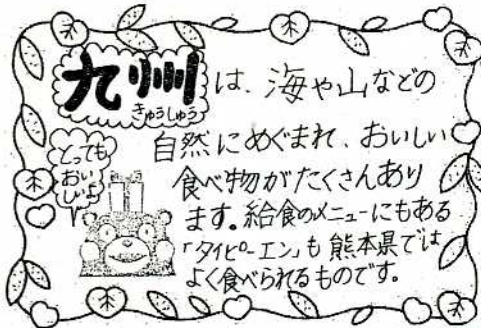 九州は、海や山などの
きゅうしゅう
自然にめぐまれ、おいしい
食べ物がたくさんあり
ます。給食のメニューにもある
「タイピーエン」も熊本県では
よく食べられるものです。
とっても
おい
しいよ